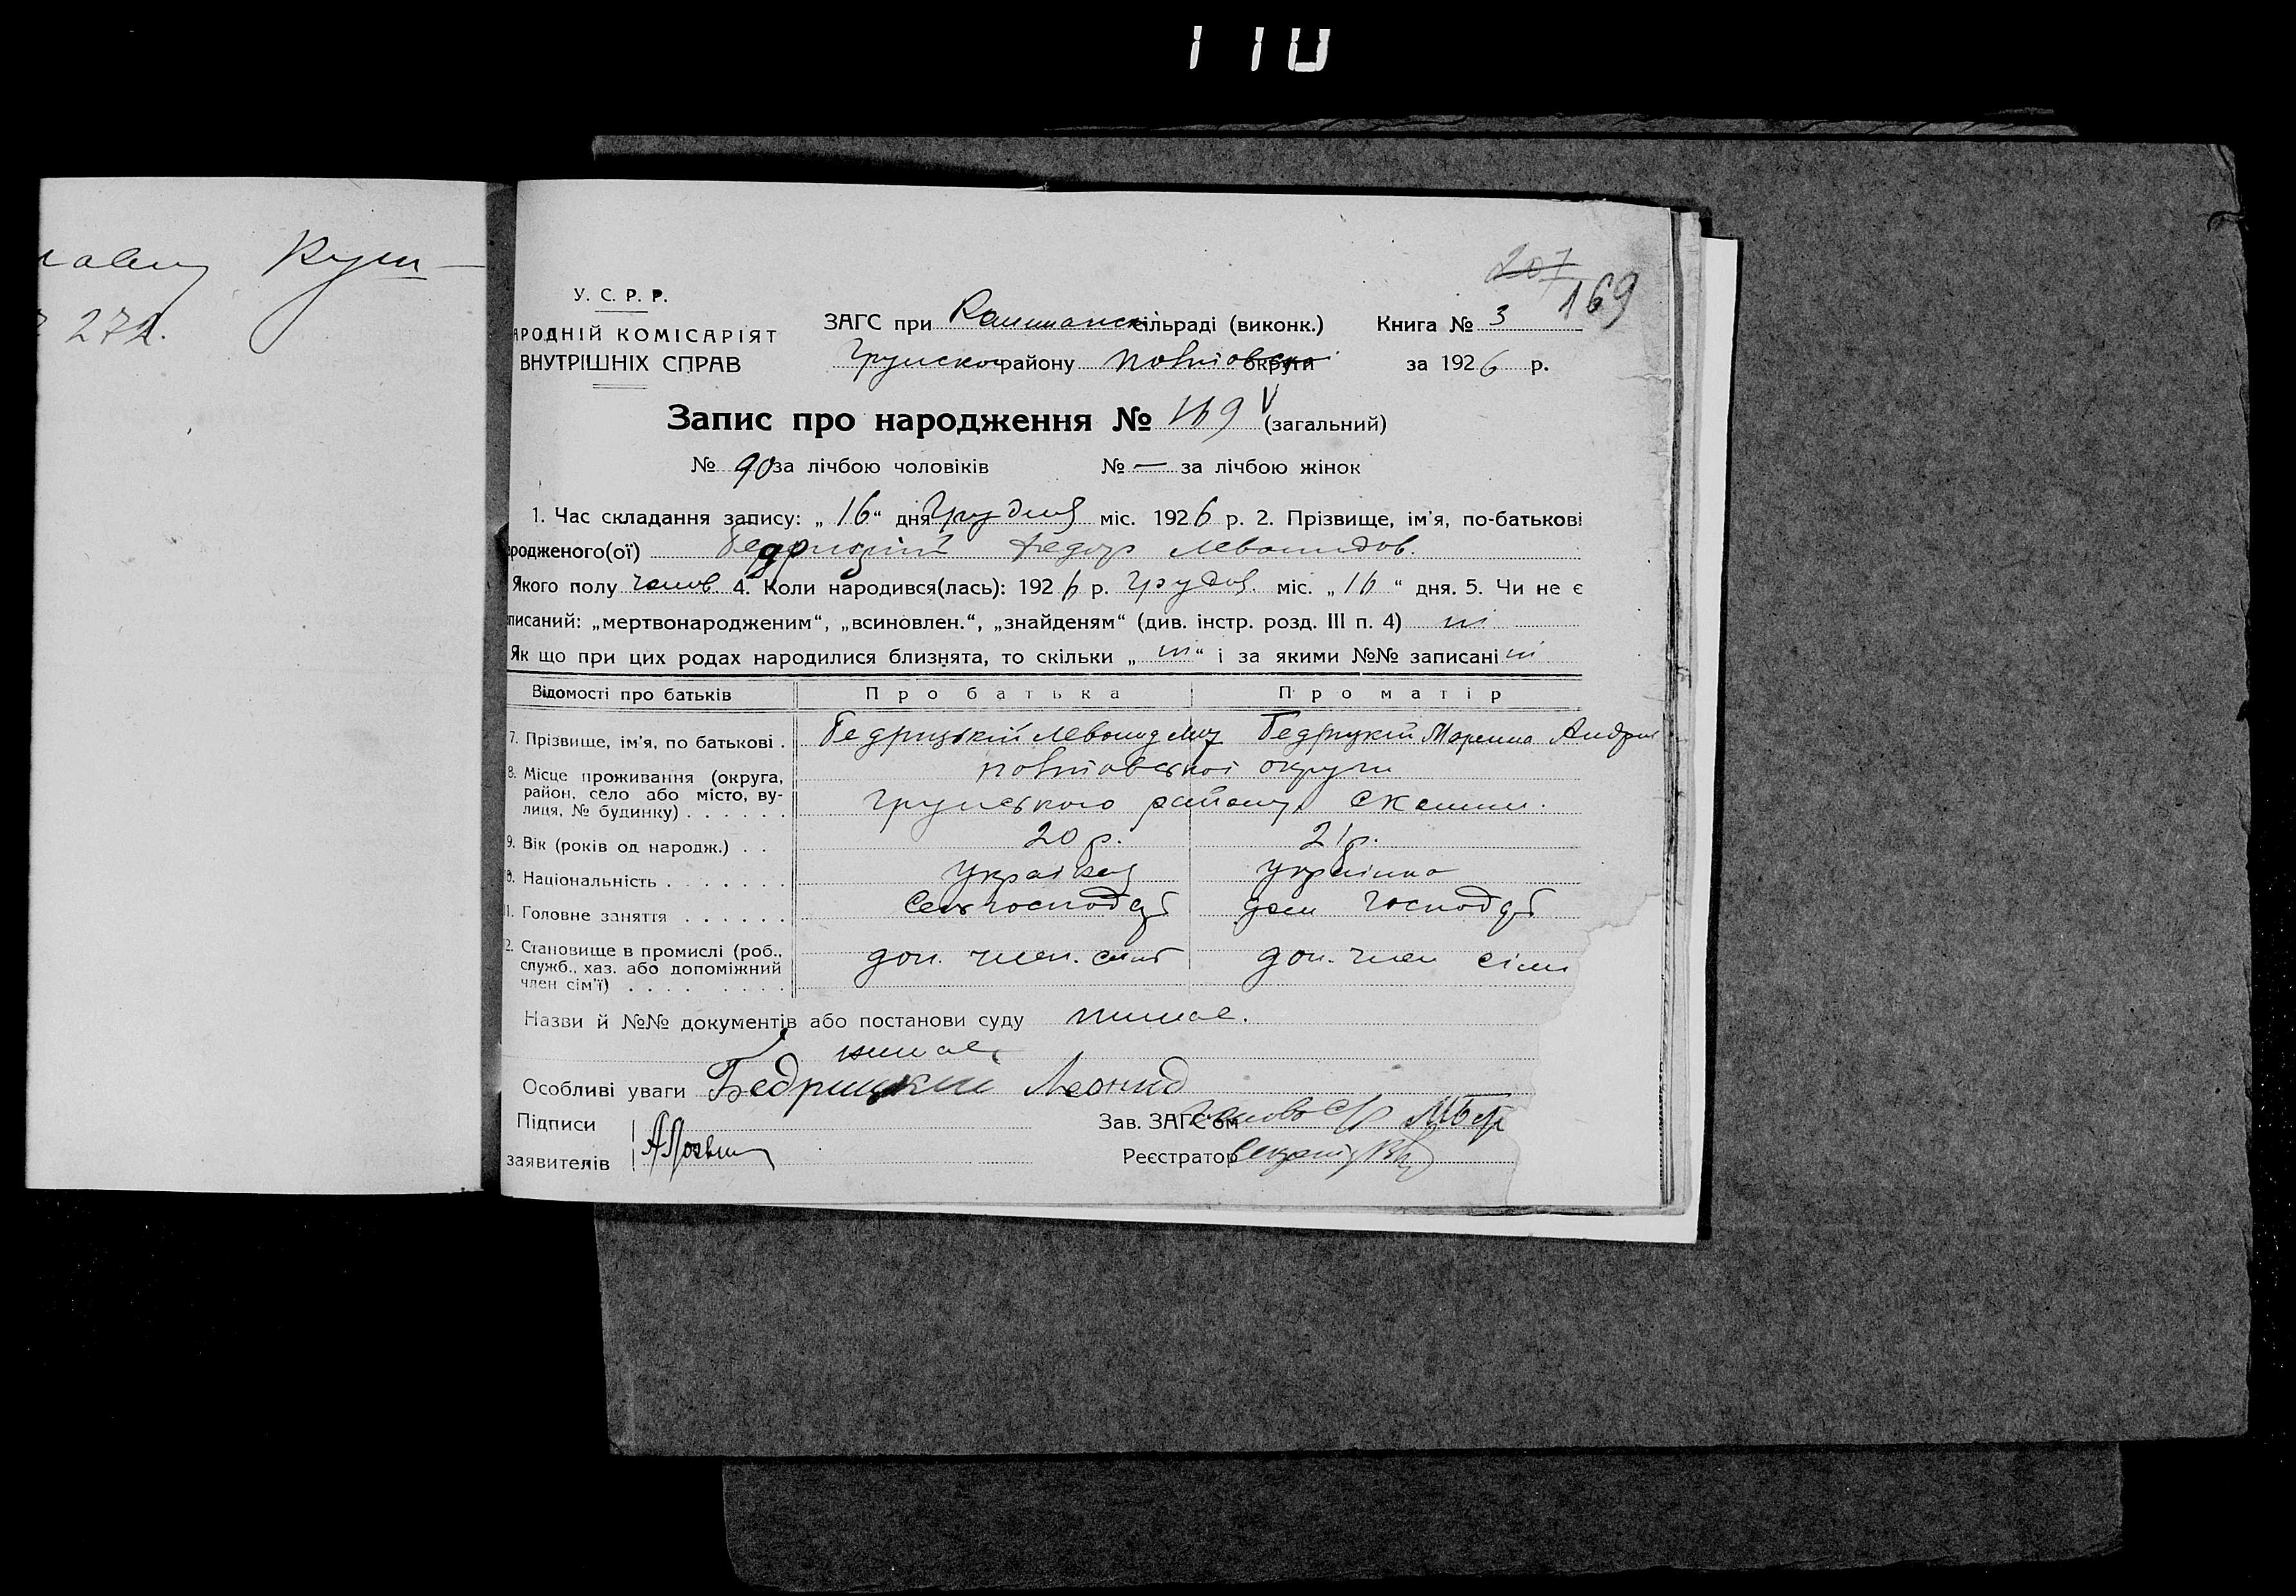 110
Кущ
272.
207
169
У. С. Р. Р.
АРОДНІЙ КОМІСАРІЯТ
ВНУТРІШНІХ СПРАВ
ЗАГС при сільраді (виконк.) Книга № 3
району округи за 1926 р.
Запис про народження № 169 V (загальний)
№ 90 за лічбою чоловіків № — за лічбою жінок
1. Час складання запису: „16“ дня Грудня міс. 1926 р. 2. Прізвище, ім'я, по-батькові
родженого(ої) Бедрицкий Федор Левонидов.
Якого полу чолов. 4. Коли народився(лась): 1926 р. Грудня. міс. „16“ дня. 5. Чи не є
писаний: „мертвонародженим“, „всиновлен.“, „знайденям“ (див. інстр. розд. III п. 4) ні
Як що при цих родах народилися близнята, то скільки „ні“ і за якими №№ записані ні
Відомості про батьків Про батька Про матір
7. Прізвище, ім'я, по батькові . Бедрицький Левонид Бедрицкий Марина Андри
8. Місце проживання (округа, район, село або місто, вулиця, № будинку) . . . . . . округи
Грунського району,
9. Вік (років од народж.) . . 20 р. 21 р.
Національність . . . . . . . україн українка
Головне заняття . . . . . . Сель господар дом господар
2. Становище в промислі (роб., служб., хаз. або допоміжний член сім'ї) . . . . доп. член. сімї доп. член сімі
Назви й №№ документів або постанови суду немає.
немає
Особливі уваги Бедрицкий Леонид
Підписи
заявителів
Зав. ЗАГС'ом
Реєстратор